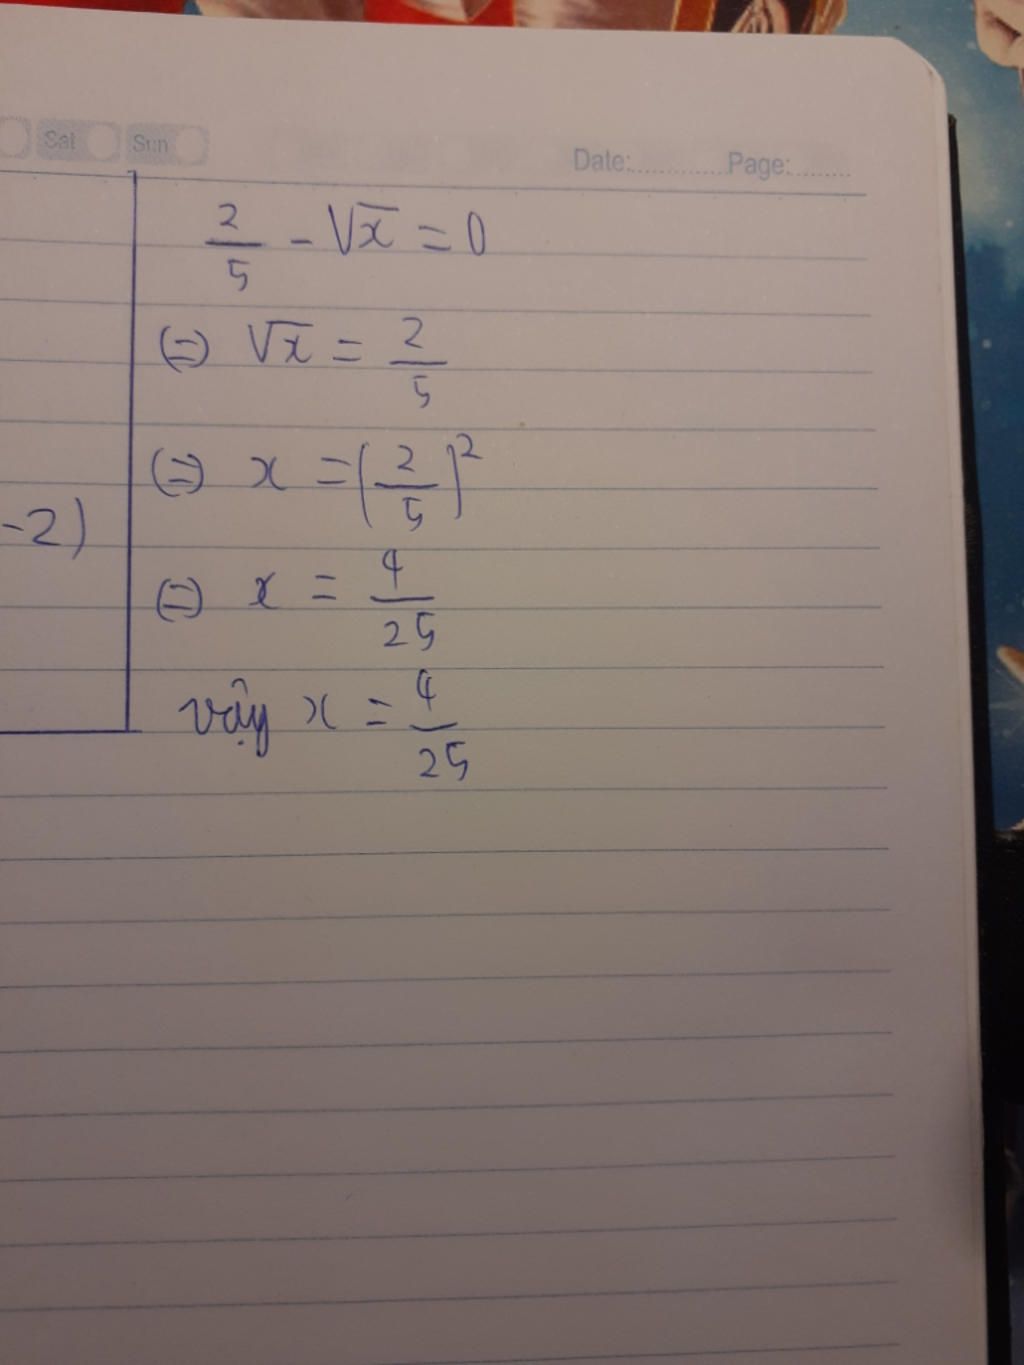 Sat Sun
Date:.............Page:........
2/5 - √x = 0
(=) √x = 2/5
(=) x = (2/5)²
-2)
(=) x = 4/25
vậy x = 4/25